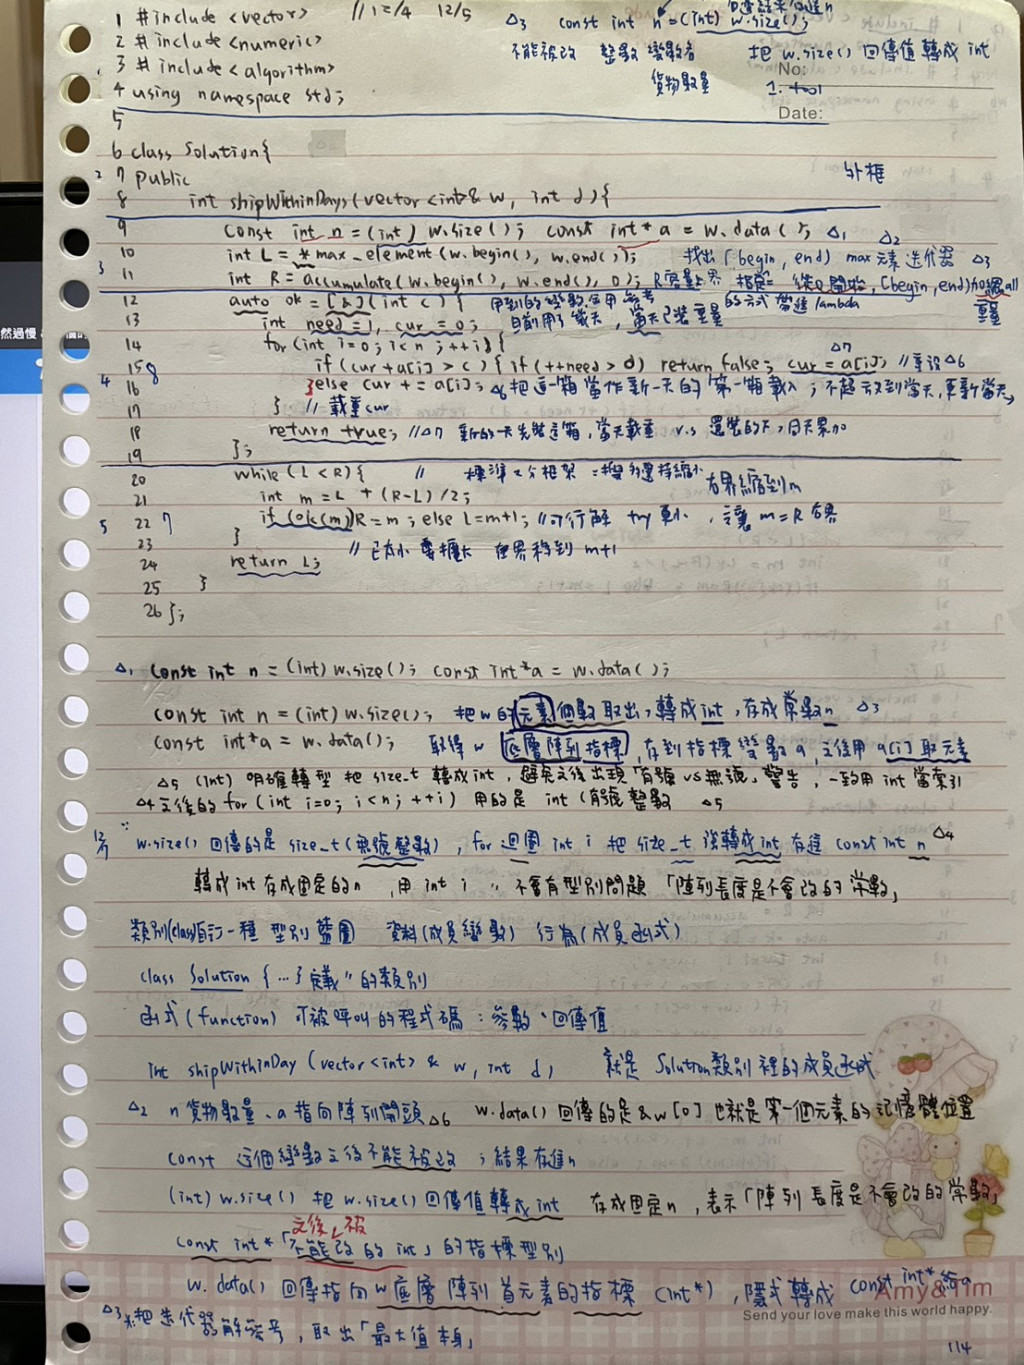 1 #include <vector> // 12/4 12/5
△3 const int n = (int) w.size();
2 #include <numeric>
不能被改 整數 變數名 把 w.size() 回傳值轉成 int
3 #include <algorithm>
No:
貨物數量
4 using namespace std;
Date:
5
6 class Solution{
外框
7 public
8 int shipWithinDays(vector<int>& w, int d){
9 const int n = (int) w.size(); const int* a = w.data(); △1 △2
10 int L = *max_element(w.begin(), w.end()); 找出 [begin, end) max 元素 迭代器 △3
11 int R = accumulate(w.begin(), w.end(), 0); R容量上界 從0開始, [begin, end)加總all
12 auto ok = [&](int c) { 用到的變數 的方式 帶進 lambda 重量
13 int need = 1, cur = 0; 目前用了幾天, 當天已裝重量
14 for(int i=0; i<n; ++i){
△7
15 if (cur + a[i] > c) { if (++need > d) return false; cur = a[i]; //重設 △6
16 }else cur += a[i]; △6 把這一箱當作新一天的第一箱載入; 不超 放到當天, 更新當天
17 } // 載重cur
18 return true; //△7 新的一天先裝這箱, 當天載重 v.s 還裝的下, 同天累加
19 };
20 while (L < R){ // 標準二分框架
右界縮到m
21 int m = L + (R-L)/2;
22 if (ok(m)) R = m; else L = m+1; //可行解 try 更小, 讓 m = R 右界
23 } // 已太小 要擴大 左界移到 m+1
24 return L;
25 }
26 };
△1 const int n = (int) w.size(); const int*a = w.data();
const int n = (int) w.size(); 把w的元素個數取出, 轉成int, 存成常數n △3
const int*a = w.data(); 取得 w 底層陣列指標, 存到指標變數a, 之後用 a[i] 取元素
△5 (int) 明確轉型 把 size_t 轉成int, 避免之後出現「有號 vs 無號」警告, 一致用 int 當索引
△4 之後的 for (int i=0; i<n; ++i) 用的是 int (有號整數 △5
w.size() 回傳的是 size_t (無號整數), for 迴圈 int i 把 size_t 強轉成int 存進 const int n △4
轉成int 存成固定的n, 用 int i 〃 不會有型別問題 「陣列長度是不會改的常數」
類別(class)自訂一種 型別藍圖 資料(成員變數) 行為(成員函式)
class Solution {…} 定義〃的類別
函式(function) 可被呼叫的程式碼: 參數、回傳值
int shipWithinDay (vector<int> & w, int d) 就是 Solution類別裡的成員函式
△2 n 貨物數量、a 指向陣列開頭 △6 w.data() 回傳的是 &w[0] 也就是第一個元素的記憶體位置
const 這個變數之後不能被改; 結果存進n
(int) w.size() 把 w.size() 回傳值轉成int 存成固定n, 表示「陣列長度是不會改的常數」
之後 被
const int* 「不能改的int」的指標型別
w.data() 回傳指向w底層陣列首元素的指標 (int*), 隱式轉成 const int* 給a
Amy & Tim
Send your love make this world happy.
△3 *把迭代器解參考, 取出「最大值本身」
114